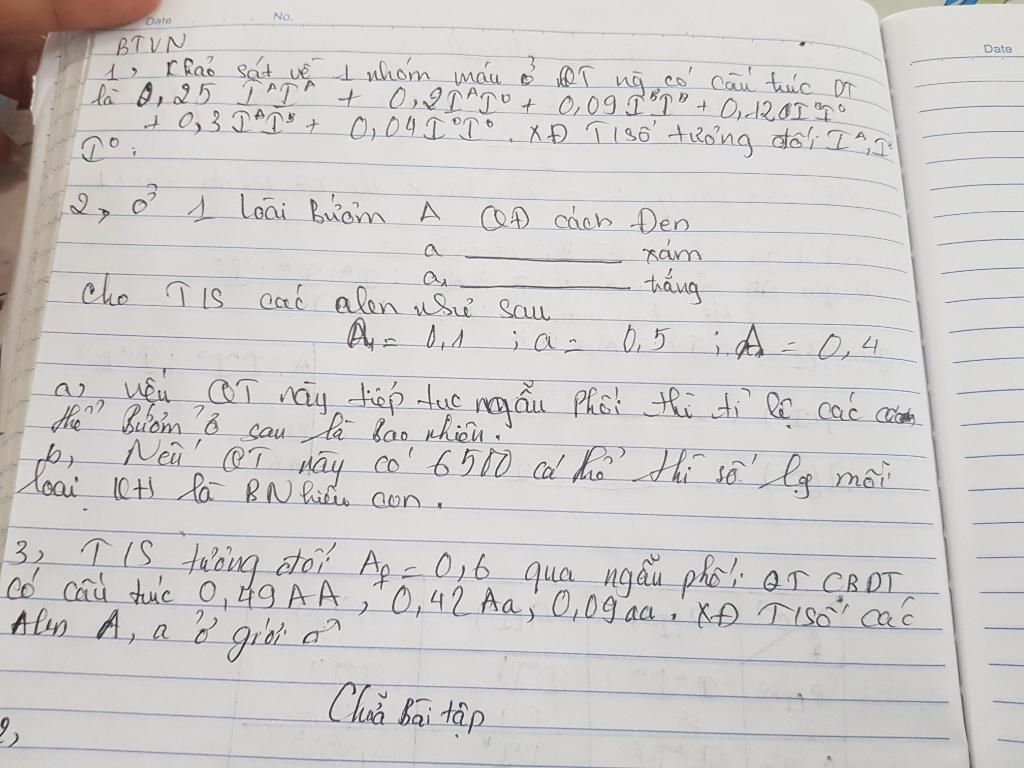 Date No.
BTVN
1, Khảo sát về 1 nhóm máu ở QT ng có cấu trúc DT
là 0,25 IᴬIᴬ + 0,2IᴬIᴼ + 0,09IᴮIᴮ + 0,120IᴮIᴼ
+ 0,3 IᴬIᴮ + 0,04IᴼIᴼ. XĐ T/số tương đối Iᴬ, Iᴮ
Iᴼ.
2, ở 1 loài Bướm A QĐ cách Đen
a xám
a₁ trắng
Cho T/S các alen như sau
A₁ = 0,1 ; a = 0,5 ; A = 0,4
a, nếu QT này tiếp tục ngẫu phối thì tỉ lệ các
thể Bướm ở sau là bao nhiêu.
b, Nếu QT này có 6500 cá thể thì số lg mỗi
loại KH là BNhiêu con.
3, T/S tương đối A♀ = 0,6 qua ngẫu phối QT CBDT
có cấu trúc 0,49AA, 0,42Aa, 0,09aa. XĐ T/số các
Alen A, a ở giới ♂
Chữa Bài tập
2,
Date